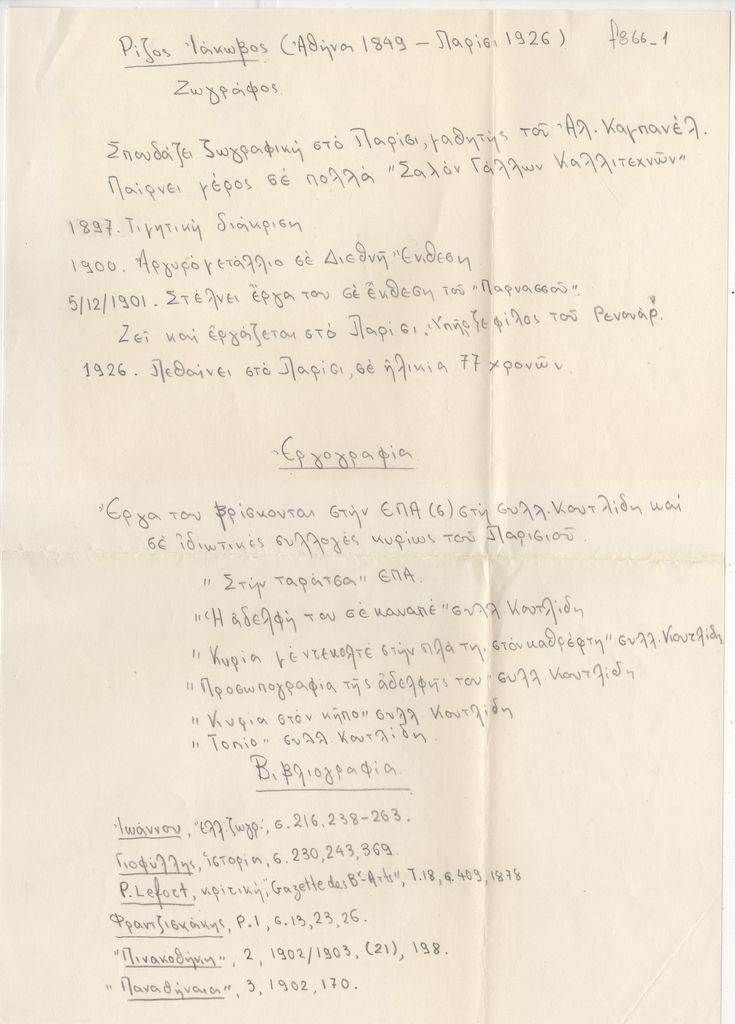 Ρίζος Ἰάκωβος (Ἀθήνα 1849 – Παρίσι 1926) f866_1
Ζωγράφος
Σπουδάζει ζωγραφική στό Παρίσι, μαθητής τοῦ Ἀλ. Καμπανέλ.
Παίρνει μέρος σέ πολλά "Σαλόν Γάλλων Καλλιτεχνῶν"
1897. Τιμητική διάκριση
1900. Ἀργυρό μετάλλιο σέ Διεθνῆ Ἔκθεση
5/12/1901. Στέλνει ἔργα του σέ ἔκθεση τοῦ "Παρνασσοῦ".
Ζεῖ καί ἐργάζεται στό Παρίσι. Ὑπῆρξε φίλος τοῦ Ρενουάρ.
1926. Πεθαίνει στό Παρίσι, σέ ἡλικία 77 χρονῶν.
Ἐργογραφία
Ἔργα του βρίσκονται στήν ΕΠΑ (6) στή συλλ. Κουτλίδη καί
σέ ἰδιωτικές συλλογές κυρίως τοῦ Παρισιοῦ.
"Στήν ταράτσα" ΕΠΑ.
"Ἡ ἀδελφή του σέ καναπέ" συλλ Κουτλίδη
"Κυρία μέ ντεκολτέ στήν πλάτη, στόν καθρέφτη" συλλ. Κουτλίδη
"Προσωπογραφία τῆς ἀδελφῆς του" συλλ. Κουτλίδη
"Κυρία στόν κῆπο" συλλ Κουτλίδη
"Τοπίο" συλλ. Κουτλίδη.
Βιβλιογραφία
Ἰωάννου, "Ἑλλ. ζωγρ.", σ. 216, 238-263.
Γιοφύλλης, ἱστορία, σ. 230, 243, 369.
P. Lefort, κριτική, "Gazette des B^x-Arts", T.18, σ. 409, 1878
Φραντζισκάκης, P.1, σ. 13, 23, 26.
"Πινακοθήκη", 2, 1902/1903, (21), 198.
"Παναθήναια", 3, 1902, 170.